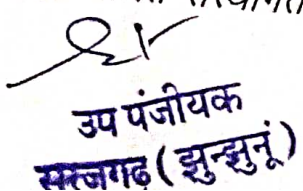 उप पंजीयक
सूरजगढ़ ( झुन्झुनूं )